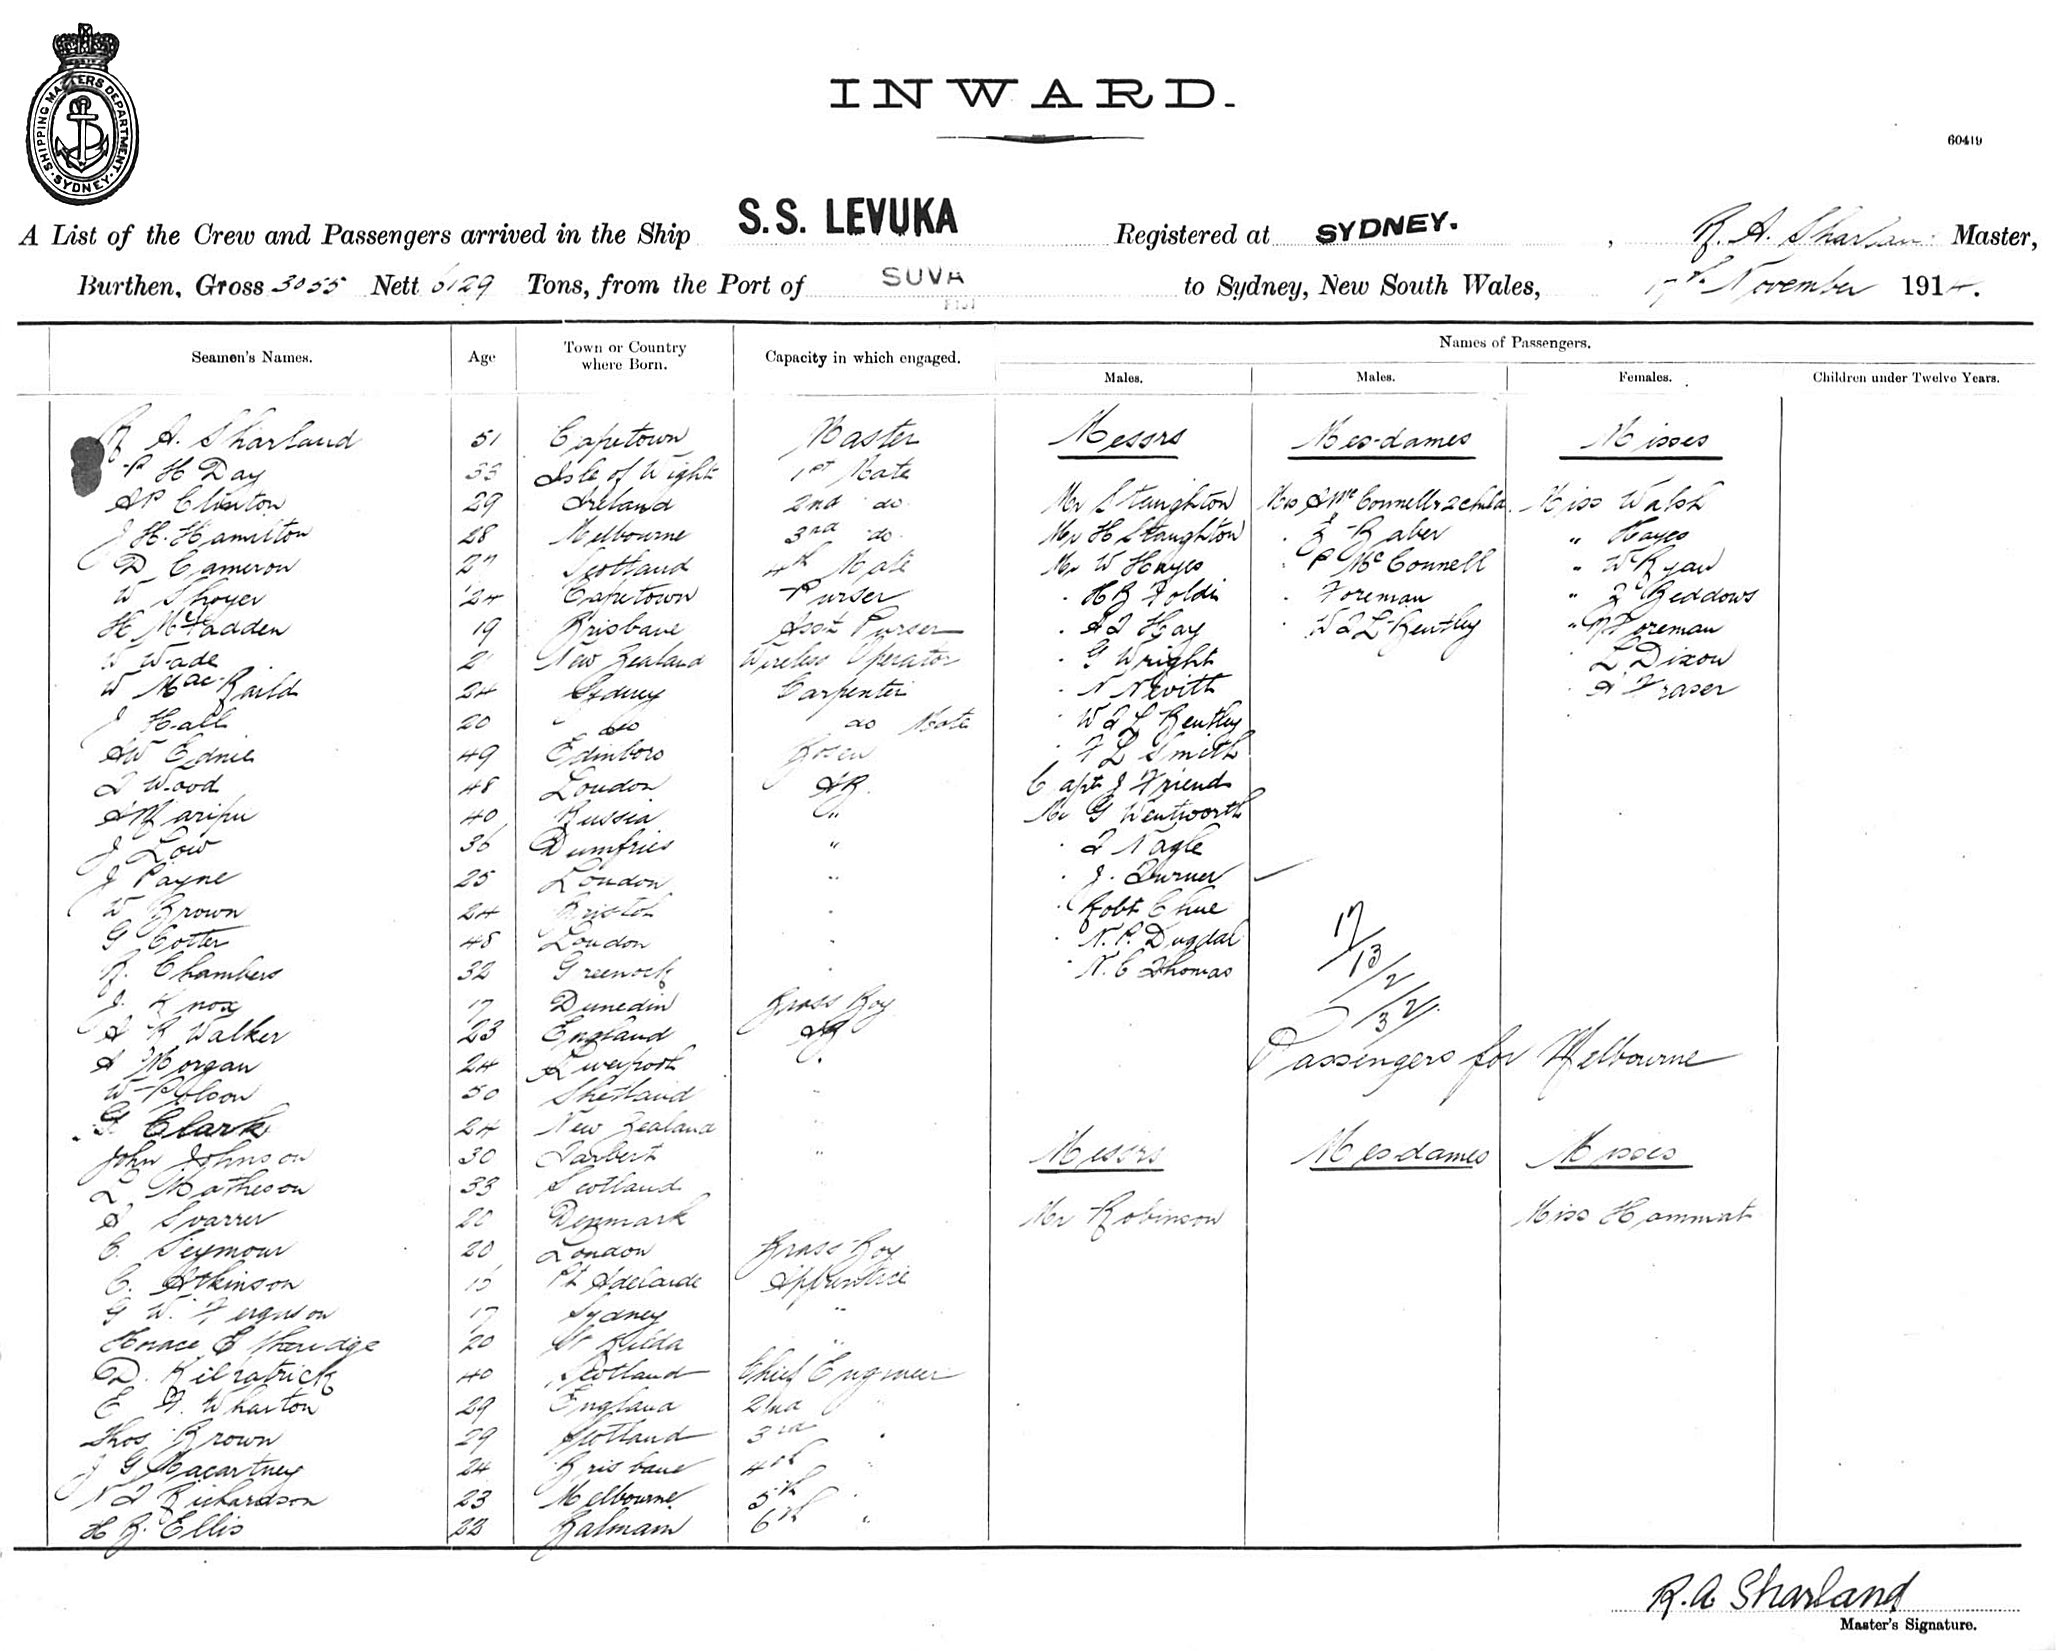 SHIPPING MASTERS DEPARTMENT. SYDNEY.
INWARD.
60419
A List of the Crew and Passengers arrived in the Ship S.S. LEVUKA Registered at SYDNEY. , R. A. Sharland Master,
Burthen, Gross 3055 Nett 6129 Tons, from the Port of SUVA FIJI to Sydney, New South Wales, November 1914.
Seamen's Names. Age Town or Country where Born. Capacity in which engaged. Names of Passengers.
Males. Males. Females. Children under Twelve Years.
R A. Sharland 51 Capetown Master Messrs Mes-dames Misses
P H Day 33 Isle of Wight 1st Mate
AP Clinton 29 Ireland 2nd do Mr Staughton Mrs A McConnell & 2 child. Miss Walsh
J H. Hamilton 28 Melbourne 3rd do. Mr H Staughton Baber " Hayes
D Cameron 27 Scotland 4th Mate Mr W Hayes P McConnell " W Ryan
W Shoyer 24 Capetown Purser H B Foreman " Beddows
H McFadden 19 Brisbane Asst Purser Hay W T L Bentley " Foreman
W Wade 2 New Zealand Wireless Operator G Wright L Dixon
W Mac-Raild 24 Sydney Carpenter N Nevitt A Fraser
J Hall 20 do do Mate W T L Bentley
AW Ednie 49 Edinboro Bosen F L Smith
T Wood 48 London AB. Capt J Friend
40 Russia " Mr G Wentworth
J Low 36 Dumfries " T Nagle
J Payne 25 London " J. Turner
W Brown 24 Bristol Robt Chue
G Cotter 48 London N. P. Dugdal 17/13/2
R. Chambers 32 Greenock N. C Thomas
J. Knox 17 Dunedin Brass Boy 32
A R Walker 23 England AB
A Morgan 24 Liverpool Passengers for Melbourne
W Polson 50 Shetland
G Clark 24 New Zealand
John Johnson 30 Tarbert " Messrs Mesdames Misses
Matheson 33 Scotland
A Svarrer 20 Denmark Mr Robinson Miss Hammat
C. Seymour 20 London Brass Boy
C. Atkinson Pt Adelaide Apprentice
G W. Ferguson 17 Sydney "
Horace 20 St Kilda "
D. Kilpatrick 40 Scotland Chief Engineer
E F. Wharton 29 England 2nd "
Thos Brown 29 Scotland 3rd
J G Macartney 24 Brisbane 4th
N T Richardson 23 Melbourne 5th "
H B. Ellis 22 Balmain 6th "
R.A Sharland
Master's Signature.